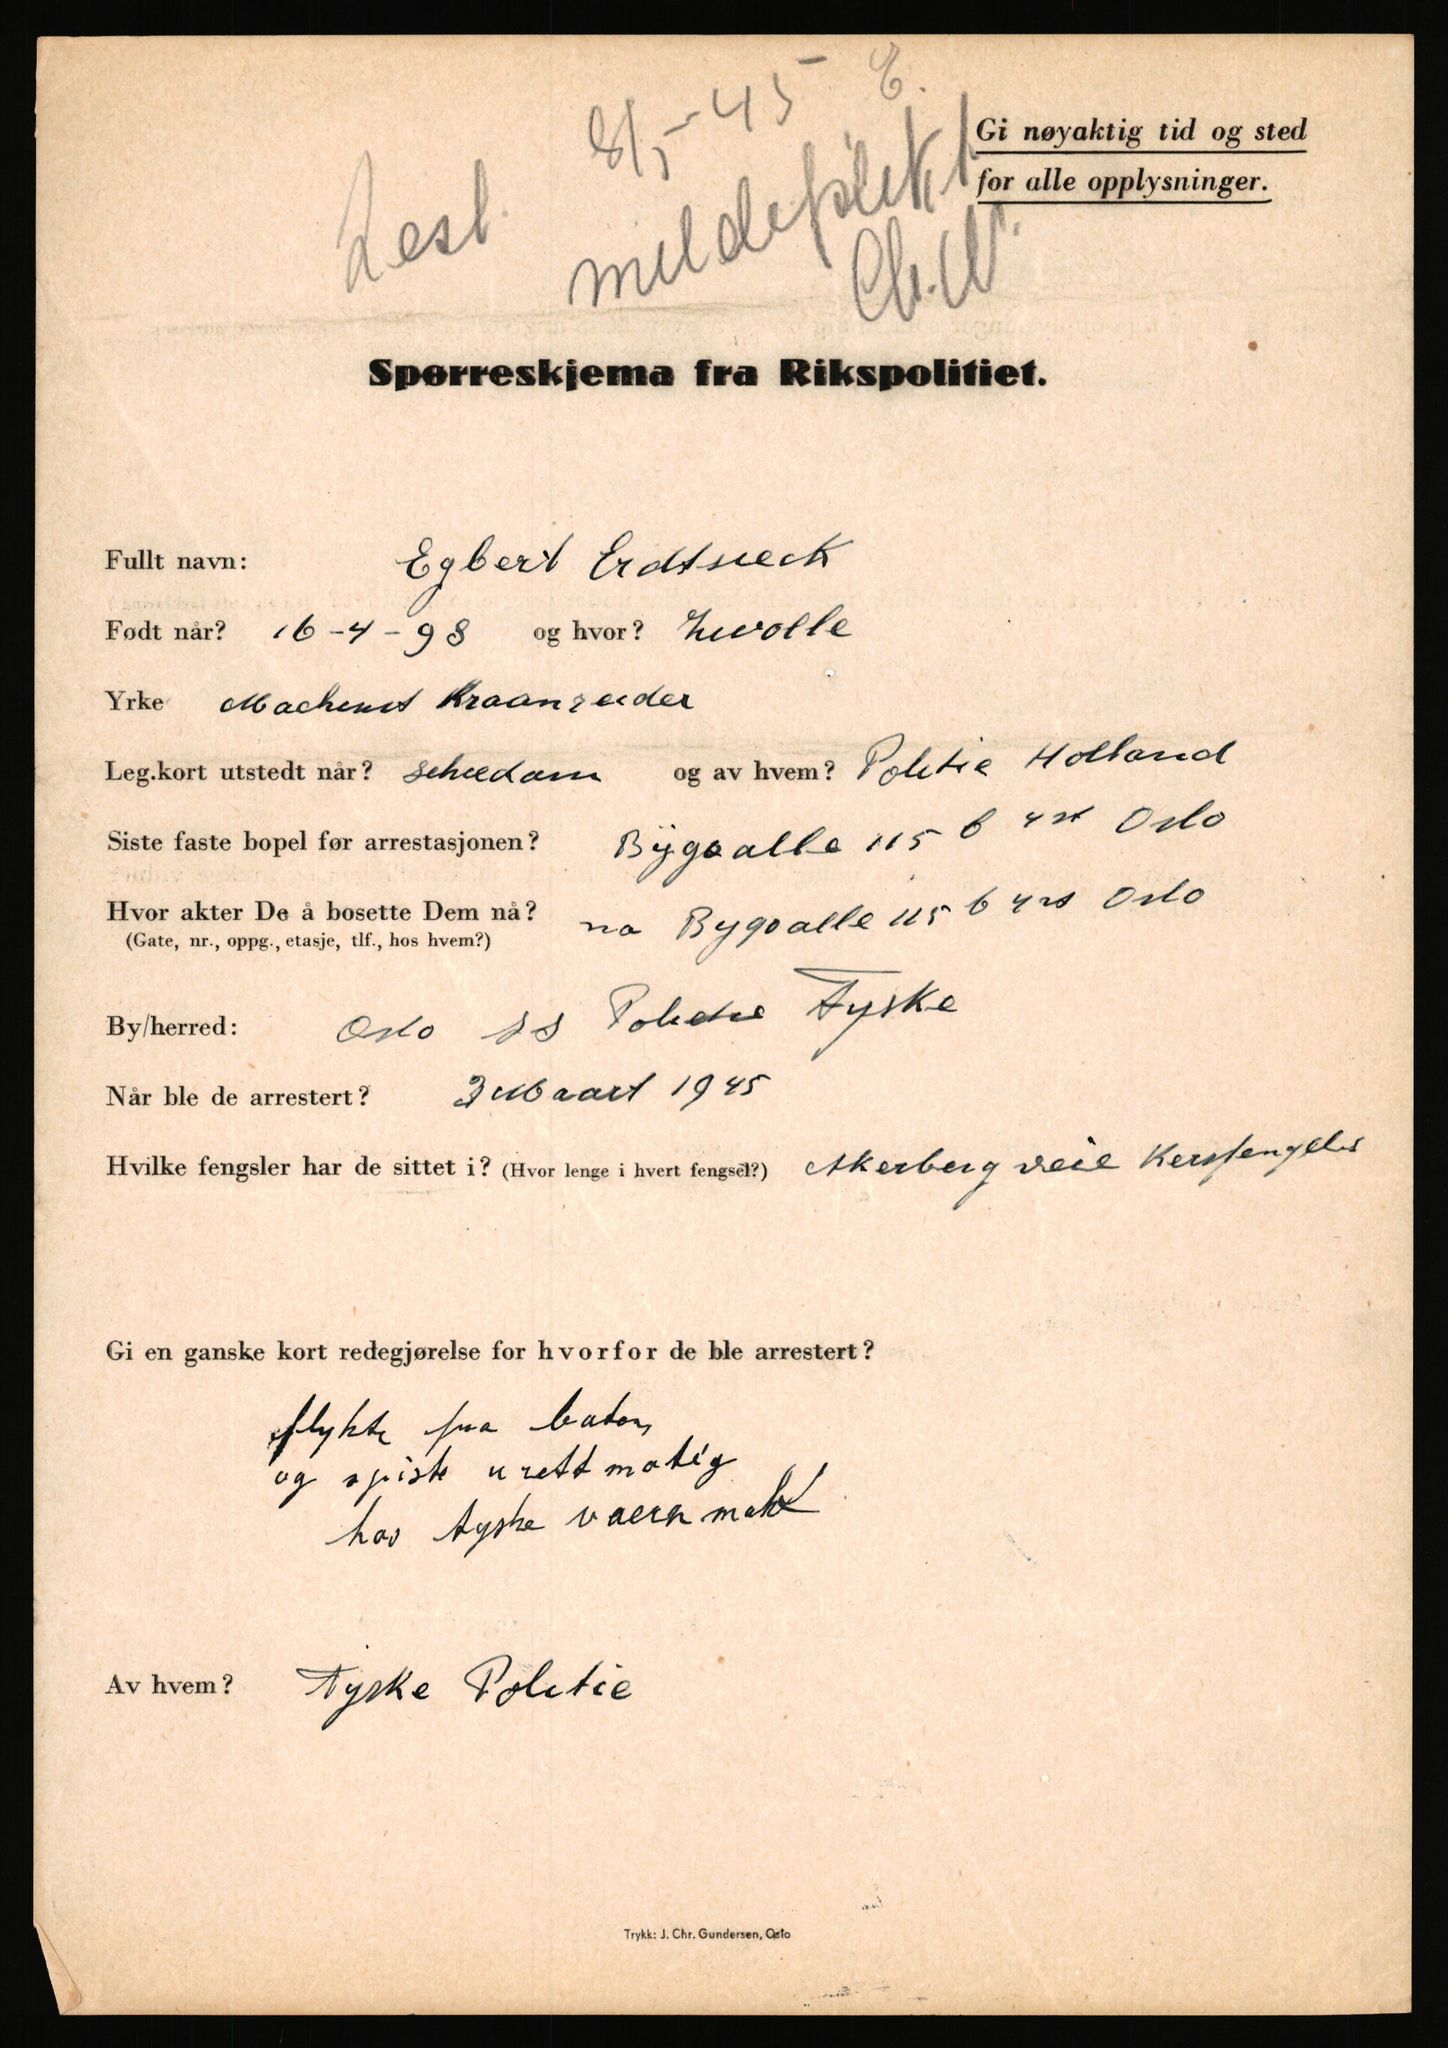 8/5-45 E.
Løsl. meldeplikt
Gi nøyaktig tid og sted
for alle opplysninger.
Spørreskjema fra Rikspolitiet.
Fullt navn: Egbert Erdtsieck
Født når? 16-4-98 og hvor? Zwolle
Yrke Machinist Kraanreider
Leg.kort utstedt når? Schiedam og av hvem? Politie Holland
Siste faste bopel før arrestasjonen? Bygoalle 115 b Oslo
Hvor akter De å bosette Dem nå? na Bygoalle 115 b Oslo
(Gate, nr., oppg., etasje, tlf., hos hvem?)
By/herred: Oslo SS Politie Tyske
Når ble de arrestert? 3 Maart 1945
Hvilke fengsler har de sittet i? (Hvor lenge i hvert fengsel?) Akerberg veie
Gi en ganske kort redegjørelse for hvorfor de ble arrestert?
flykte fra baten,
og spiste urettmatig
hos tyske vaermakt
Av hvem? Tyske Politie
Trykk: J. Chr. Gundersen, Oslo